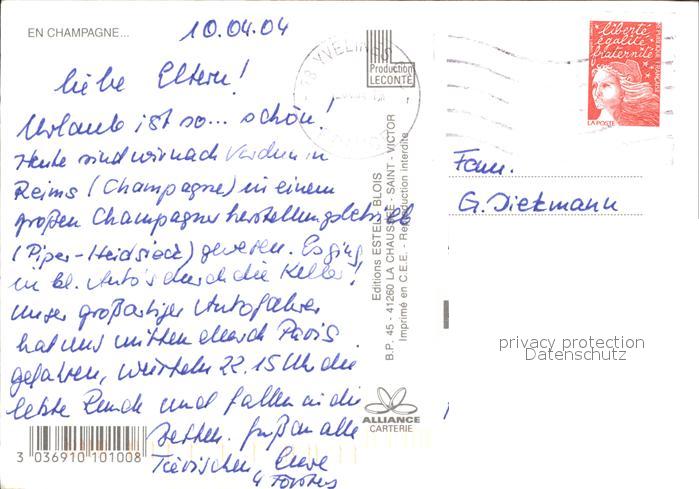 EN CHAMPAGNE...
10.04.04
liebe Eltern!
Urlaub ist so... schön!
Heute sind wir nach Verdun in
Reims (Champagne) in einem
großen Champagnerherstellungsbetrieb
(Piper-Heidsieck) gewesen. Es ging
in kl. Auto's durch die Keller!
Unser großartiger Autofahrer
hat uns mitten durch Paris
gefahren, 22.15 Uhr die
letzte Runde und fallen in die
Betten. Gruß an alle
Tierischen, Eure
4
Fam.
G. Diekmann
78 YVELINES
Production
LECONTE
liberté
égalité
fraternité
LA POSTE
Editions ESTEL - BLOIS
B.P. 45 - 41260 LA CHAUSSEE - SAINT - VICTOR
Imprimé en C.E.E. - Reproduction interdite
ALLIANCE
CARTERIE
3 036910 101008
privacy protection
Datenschutz